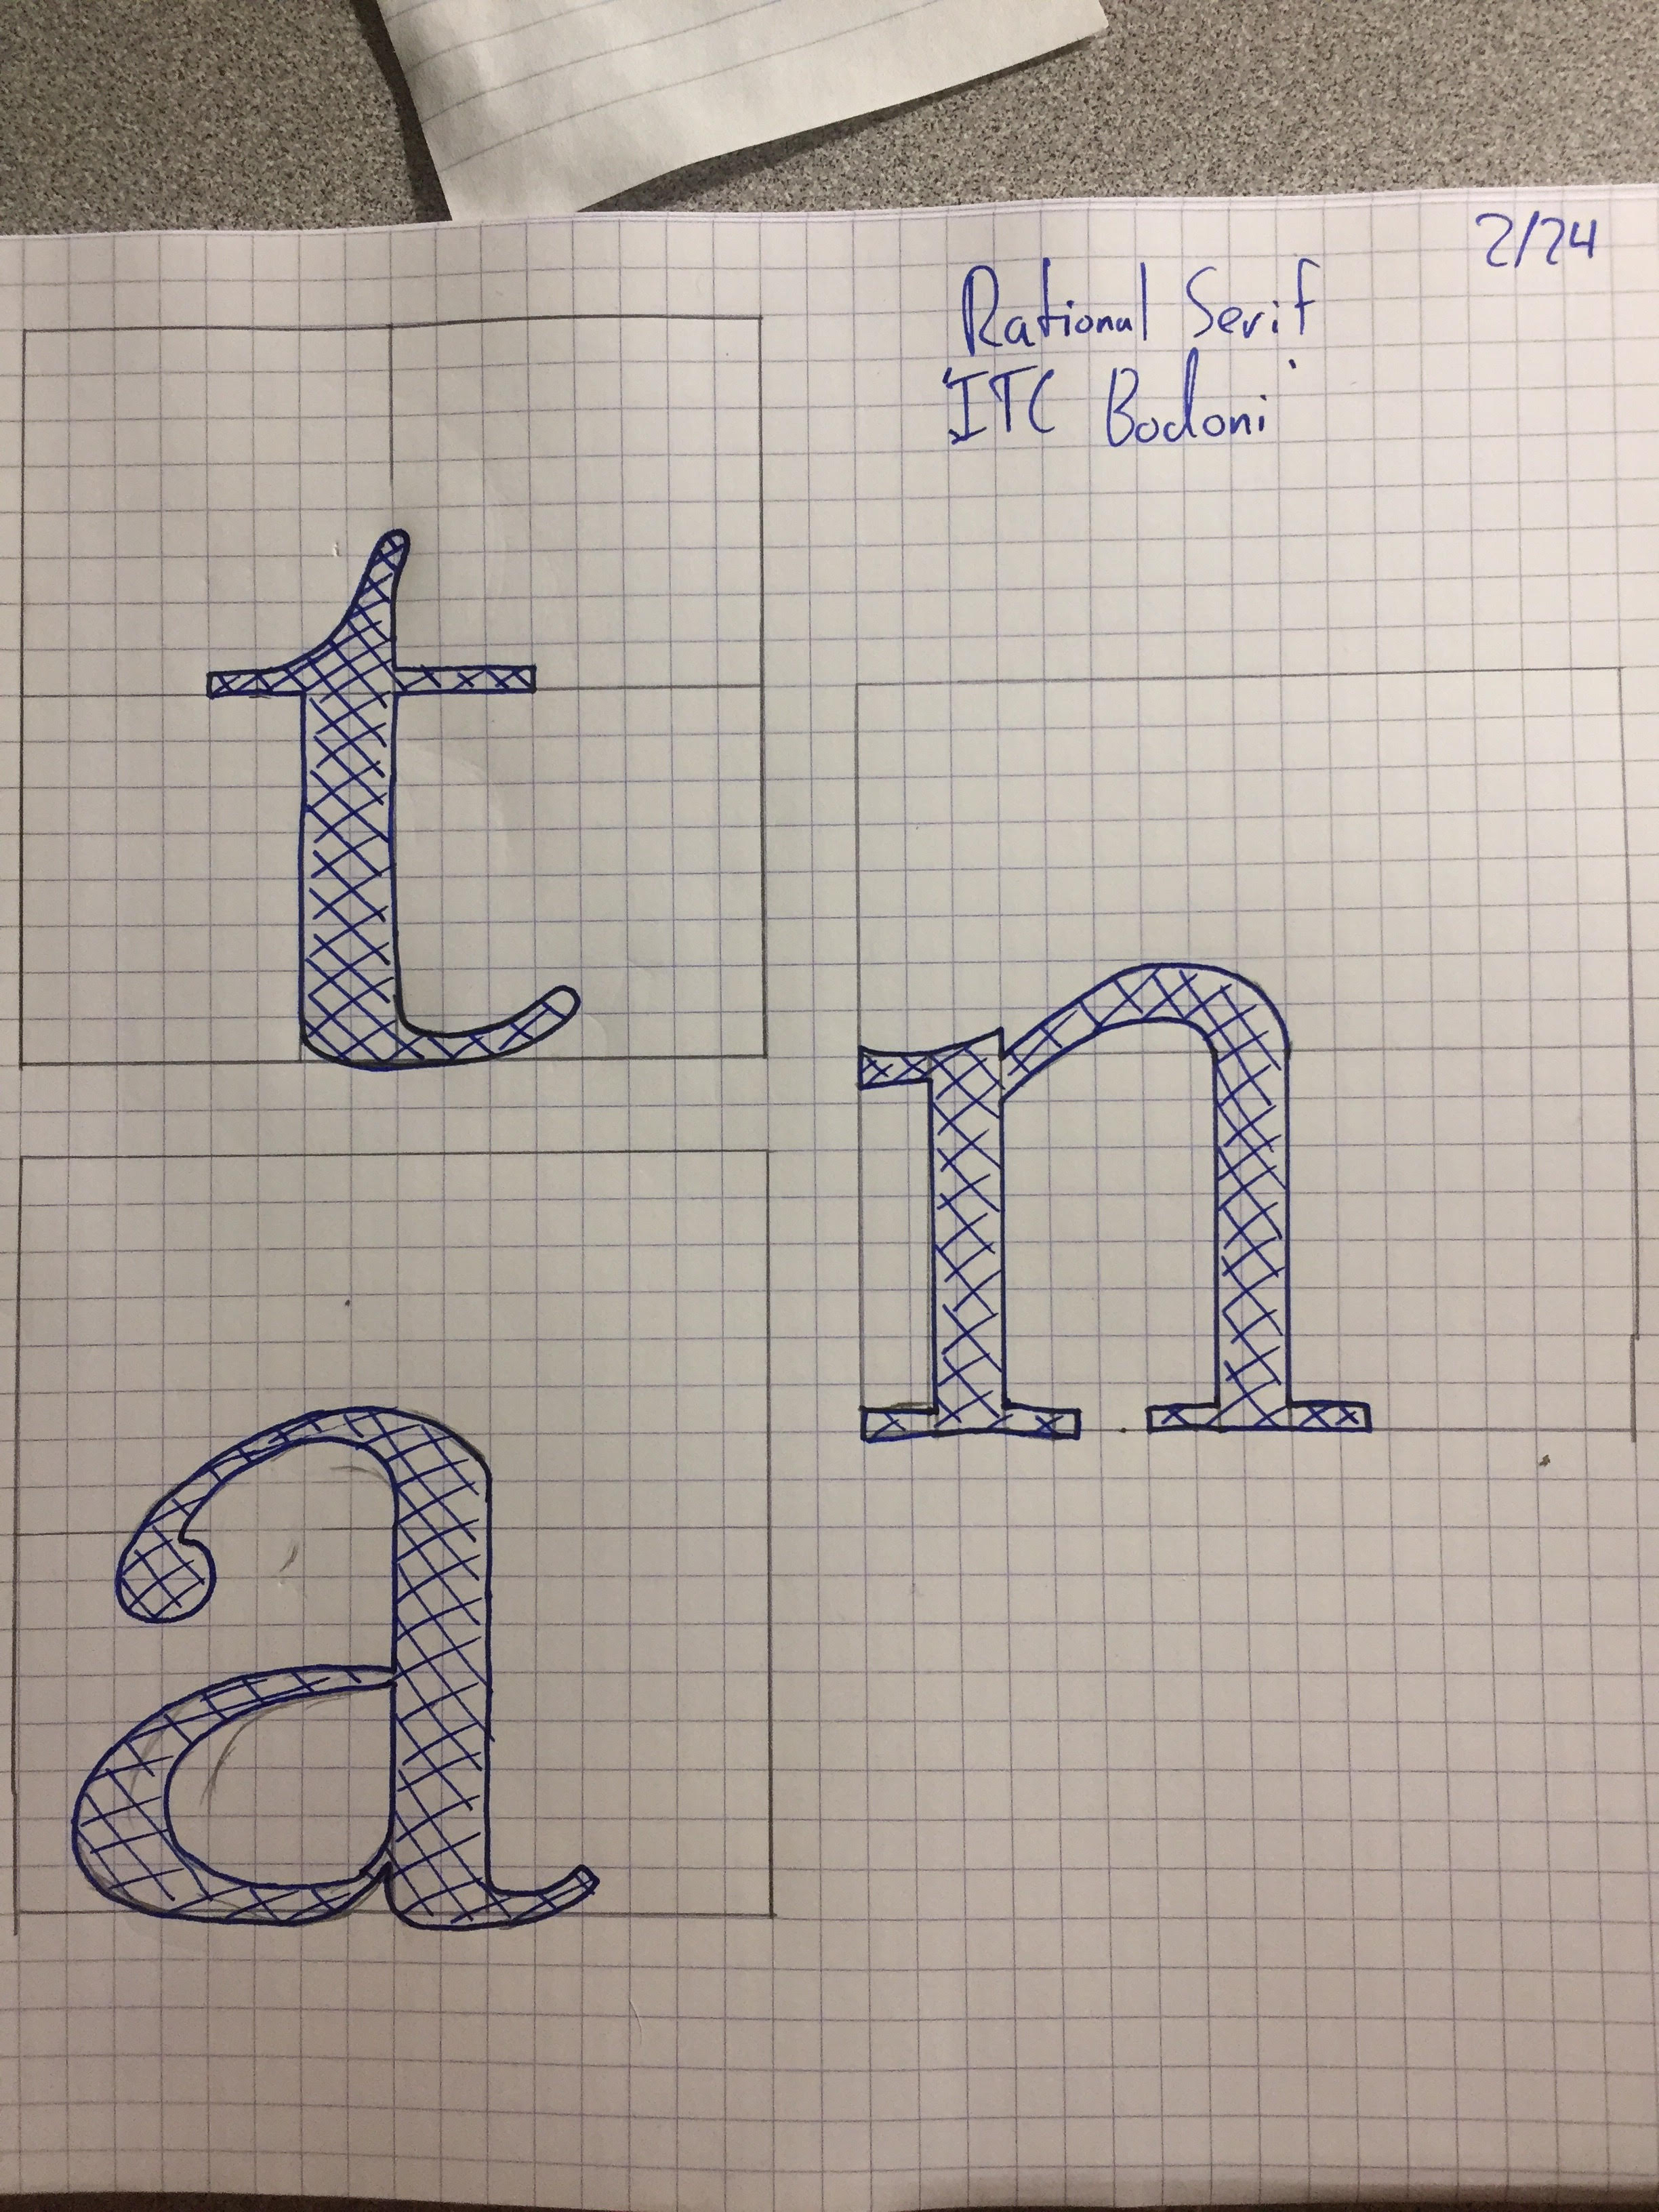 2/24
Rational Serif
'ITC Bodoni'
t
n
a